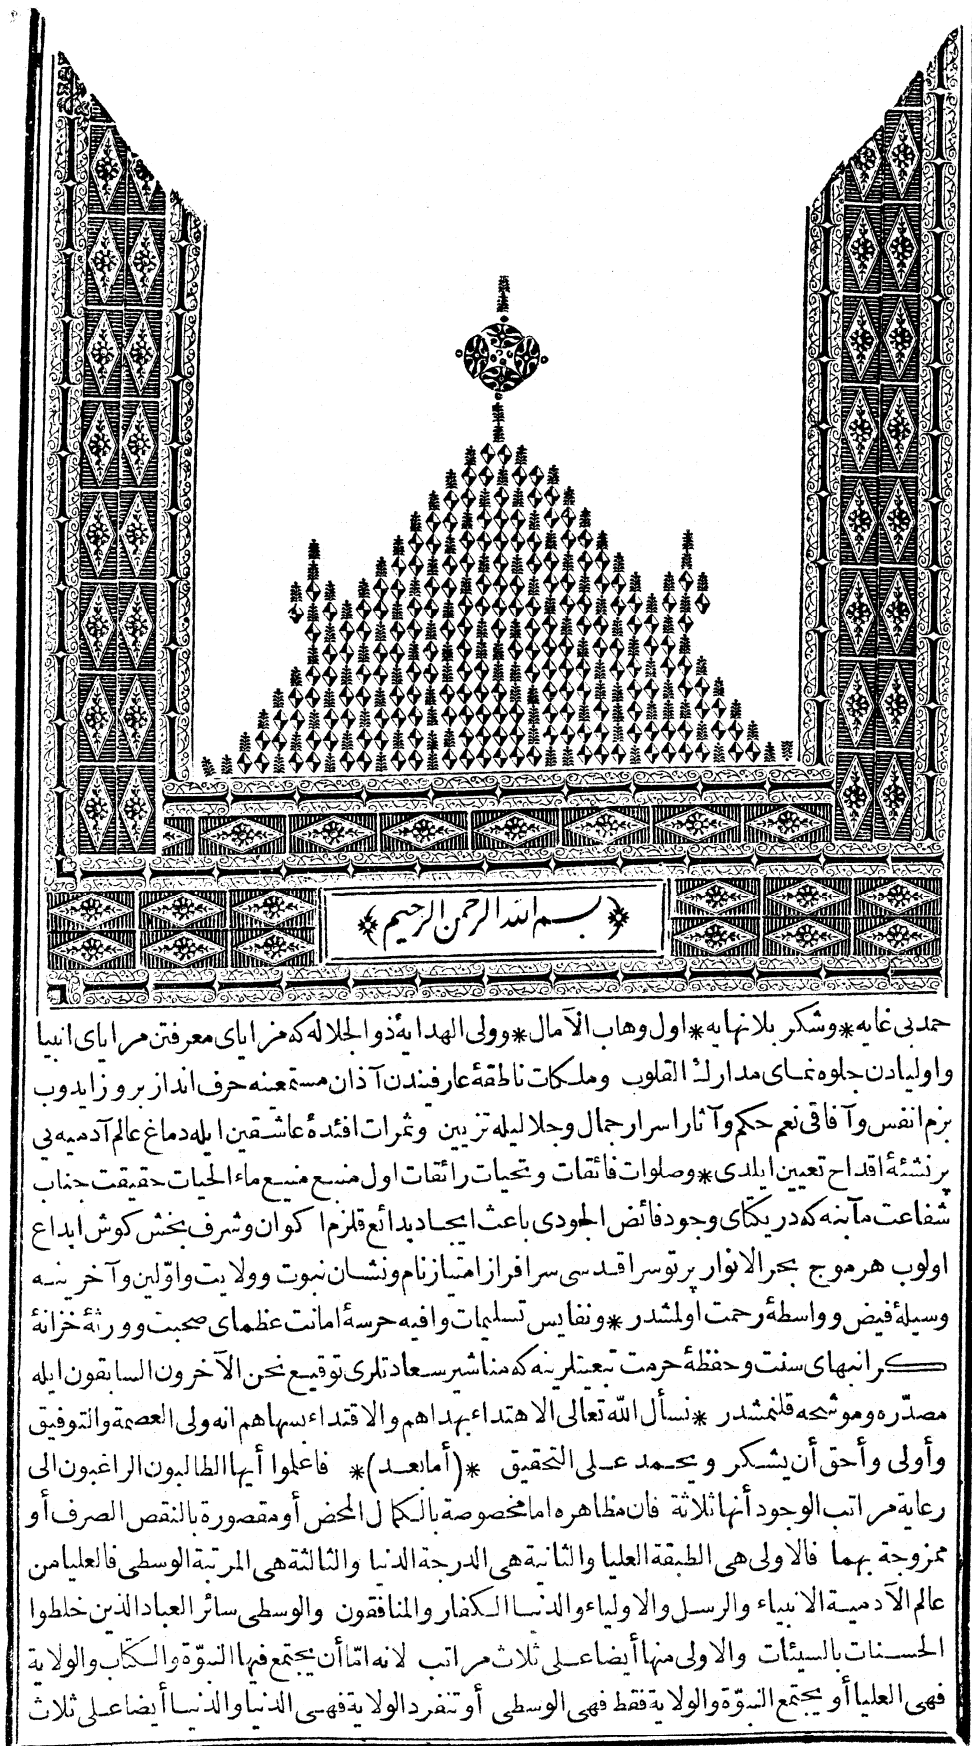 بسم الله الرحمن الرحيم
حمد بى غايه * وشكر بلا نهايه * اول وهاب الآمال * وولى الهدايهٔ ذو الجلاله كه مزاياى معرفتن مراياى انبيا
واوليادن جلوه نماى مدارك القلوب وملكات ناطقهٔ عارفيندن آذان مستمعينه حرف انداز بروز ايدوب
بزم انفس وآفاقى نعم حكم وآثار اسرار جمال وجلاليله تزيين وثمرات افئدهٔ عاشقين ايله دماغ عالم آدميه يى
پر نشئهٔ اقداح تعيين ايلدى * وصلوات فائقات وتحيات رائقات اول منبع منيع ماء الحيات حقيقت جناب
شفاعت مآبنه كه در يكتاى وجود فائض الجودى باعث ايجاد بدائع قلزم اكوان وشرف بخش كوش ابداع
اولوب هر موج بحر الانوار پرتو سر اقدسى سرافراز امتياز نام ونشان نبوت وولايت واوّلين وآخرينه
وسيلهٔ فيض وواسطهٔ رحمت اولمشدر * ونفايس تسليمات وافيه حرسهٔ امانت عظماى صحبت وورثهٔ خزانهٔ
كرانبهاى سنت وحفظهٔ حرمت تبعيتلرينه كه مناشير سعادتلرى توقيع نحن الآخرون السابقون ايله
مصدّره وموشحه قلنمشدر * نسأل الله تعالى الاهتداء بهداهم والاقتداء بسهاهم انه ولى العصمة والتوفيق
وأولى وأحق أن يشكر ويحمد على التحقيق * (أما بعد) * فاعلموا أيها الطالبون الراغبون الى
رعاية مراتب الوجود أنها ثلاثة فان مظاهره اما مخصوصة بالكمال المحض أو مقصورة بالنقص الصرف أو
ممزوجة بهما فالاولى هى الطبقة العليا والثانية هى الدرجة الدنيا والثالثة هى المرتبة الوسطى فالعليا من
عالم الآدمية الانبياء والرسل والاولياء والدنيا الكفار والمنافقون والوسطى سائر العباد الذين خلطوا
الحسنات بالسيئات والاولى منها أيضا على ثلاث مراتب لانه امّا أن يجتمع فيها النبوّة والكتاب والولاية
فهى العليا أو يجتمع النبوّة والولاية فقط فهى الوسطى أو تنفرد الولاية فهى الدنيا والدنيا أيضا على ثلاث